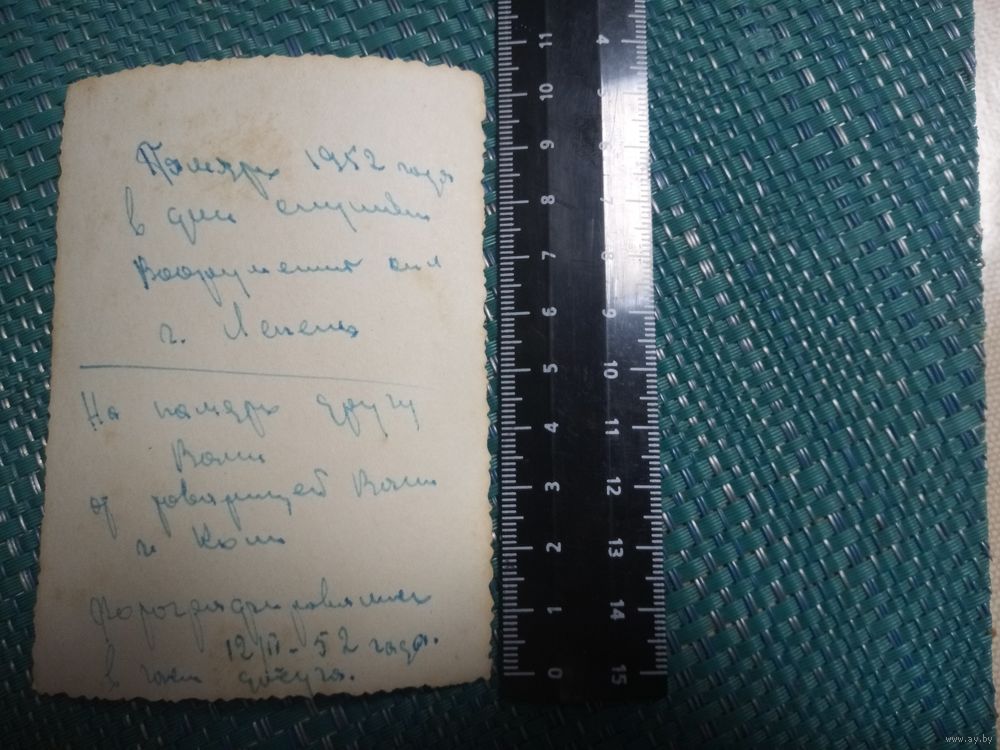 Память 1952 года
в дни службы
Вооруженных сил
г. Лепель
На память другу
Воли
от товарищей Вани
и Коли
Фотографировались
12/II-52 года.
в час досуга.
11 10 9 8 7 6 5 4 3 2 1 0
4 5 6 7 8 9 10 11 12 13 14 15
www.ay.by